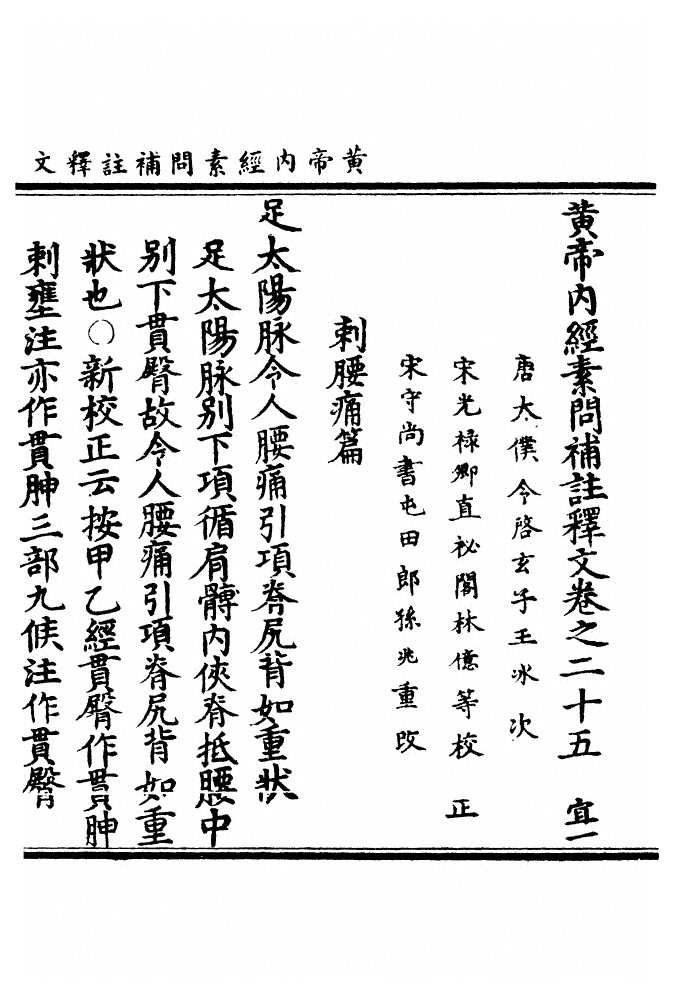 黄帝内經素問補註釋文
黄帝内經素問補註釋文卷之二十五　宜一
唐太僕令啓玄子王冰次
宋光禄卿直祕閣林億等校正
宋守尚書屯田郎孫兆重改
刺腰痛篇
足太陽脉令人腰痛引項脊尻背如重狀
足太陽脉別下項循肩髆内俠脊抵腰中
別下貫臀故令人腰痛引項脊尻背如重
狀也○新校正云按甲乙經貫臀作貫胂
刺瘧注亦作貫胂三部九候注作貫臀